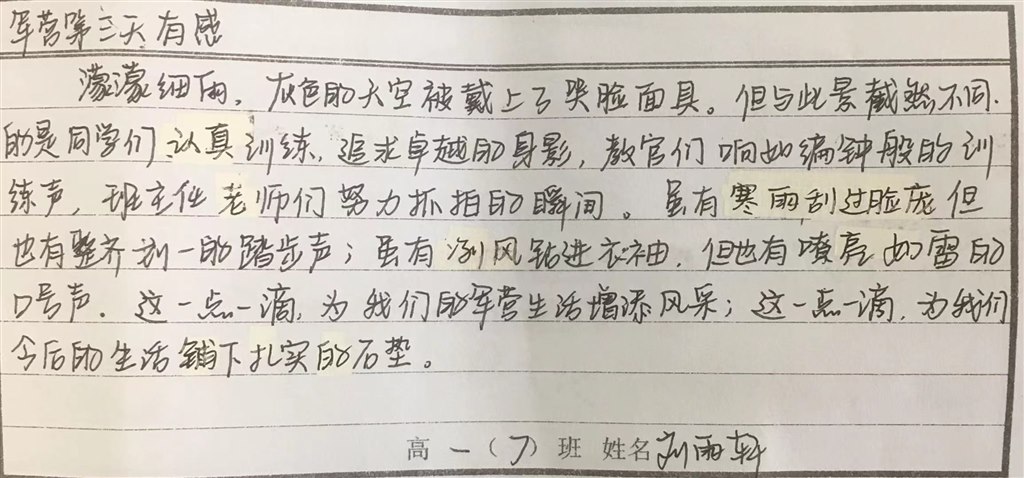 军营第三天有感
濛濛细雨,灰色的天空被戴上了哭脸面具。但与此景截然不同
的是同学们认真训练,追求卓越的身影,教官们响如编钟般的训
练声,班主任老师们努力抓拍的瞬间。虽有寒雨刮过脸庞但
也有整齐划一的踏步声;虽有冽风钻进衣袖,但也有嘹亮如雷的
口号声。这一点一滴,为我们的军营生活增添风采;这一点一滴,为我们
今后的生活铺下扎实的石垫。
高一(7)班 姓名刘雨轩